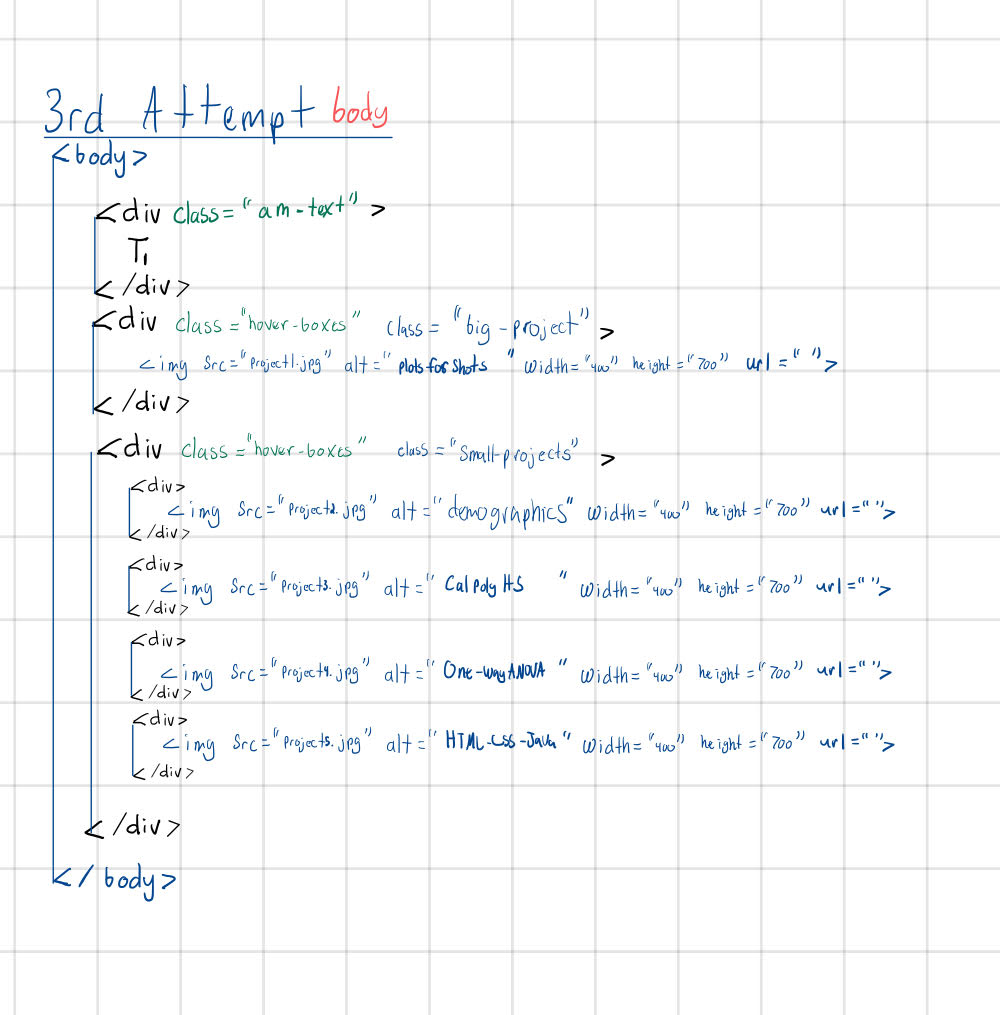 3rd Attempt body
<body>
<div class="am-text">
T1
</div>
<div class="hover-boxes" class="big-project">
<img src="project1.jpg" alt="plots for shots" width="400" height="700" url="">
</div>
<div class="hover-boxes" class="small-projects">
<div>
<img src="project2.jpg" alt="demographics" width="400" height="700" url="">
</div>
<div>
<img src="project3.jpg" alt="Cal Poly HS" width="400" height="700" url="">
</div>
<div>
<img src="project4.jpg" alt="One-way ANOVA" width="400" height="700" url="">
</div>
<div>
<img src="project5.jpg" alt="HTML-CSS-Java" width="400" height="700" url="">
</div>
</div>
</body>